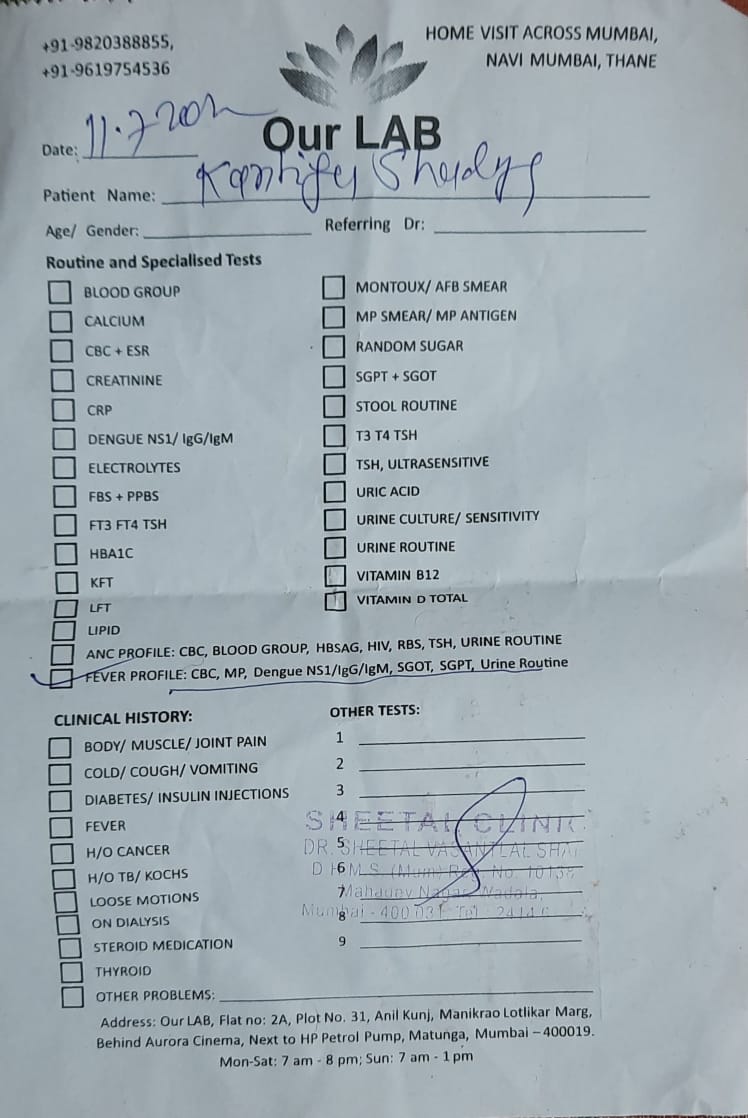 +91-9820388855,
+91-9619754536
HOME VISIT ACROSS MUMBAI,
NAVI MUMBAI, THANE
Our LAB
Date: 11.7
Patient Name:
Age/ Gender:
Referring Dr:
Routine and Specialised Tests
BLOOD GROUP
CALCIUM
CBC + ESR
CREATININE
CRP
DENGUE NS1/ IgG/IgM
ELECTROLYTES
FBS + PPBS
FT3 FT4 TSH
HBA1C
KFT
LFT
LIPID
MONTOUX/ AFB SMEAR
MP SMEAR/ MP ANTIGEN
RANDOM SUGAR
SGPT + SGOT
STOOL ROUTINE
T3 T4 TSH
TSH, ULTRASENSITIVE
URIC ACID
URINE CULTURE/ SENSITIVITY
URINE ROUTINE
VITAMIN B12
VITAMIN D TOTAL
ANC PROFILE: CBC, BLOOD GROUP, HBSAG, HIV, RBS, TSH, URINE ROUTINE
FEVER PROFILE: CBC, MP, Dengue NS1/IgG/IgM, SGOT, SGPT, Urine Routine
CLINICAL HISTORY:
BODY/ MUSCLE/ JOINT PAIN
COLD/ COUGH/ VOMITING
DIABETES/ INSULIN INJECTIONS
FEVER
H/O CANCER
H/O TB/ KOCHS
LOOSE MOTIONS
ON DIALYSIS
STEROID MEDICATION
THYROID
OTHER PROBLEMS:
OTHER TESTS:
1
2
3
4
5
6
7
8
9
SHEETAL CLINIC
DR. SHEETAL VASANTLAL SHAH
D H M S. (Mum) Reg. No.
Wadala,
Mumbai - 400 031. Tel.:
Address: Our LAB, Flat no: 2A, Plot No. 31, Anil Kunj, Manikrao Lotlikar Marg,
Behind Aurora Cinema, Next to HP Petrol Pump, Matunga, Mumbai – 400019.
Mon-Sat: 7 am - 8 pm; Sun: 7 am - 1 pm